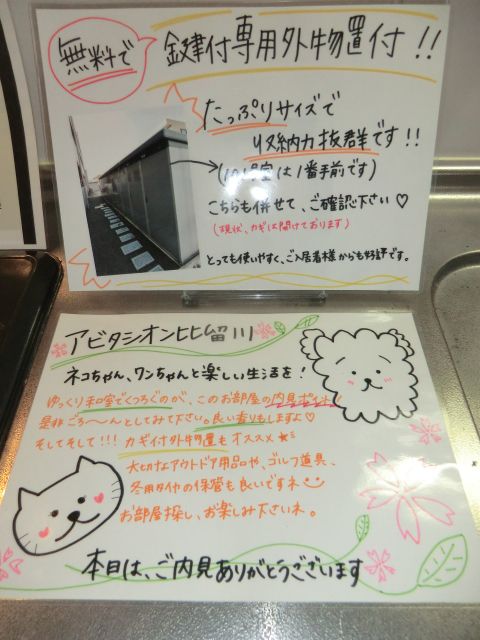 無料で
鍵付専用外物置付!!
たっぷりサイズで
収納力抜群です!!
(101号室は1番手前です)
こちらも併せて、ご確認下さい♡
(現状、カギは開けております)
とっても使いやすく、ご入居者様からも好評です。
アビタシオン比留川
ネコちゃん、ワンちゃんと楽しい生活を!
ゆっくり和室でくつろぐのが、このお部屋の内見ポイント!
是非ごろ〜んとしてみて下さい。良い香りもしますよ♡
そしてそして!!!カギ付外物置もオススメ★
大切なアウトドア用品や、ゴルフ道具、
冬用タイヤの保管も良いですネ
お部屋探し、お楽しみ下さいネ。
本日は、ご内見ありがとうございます